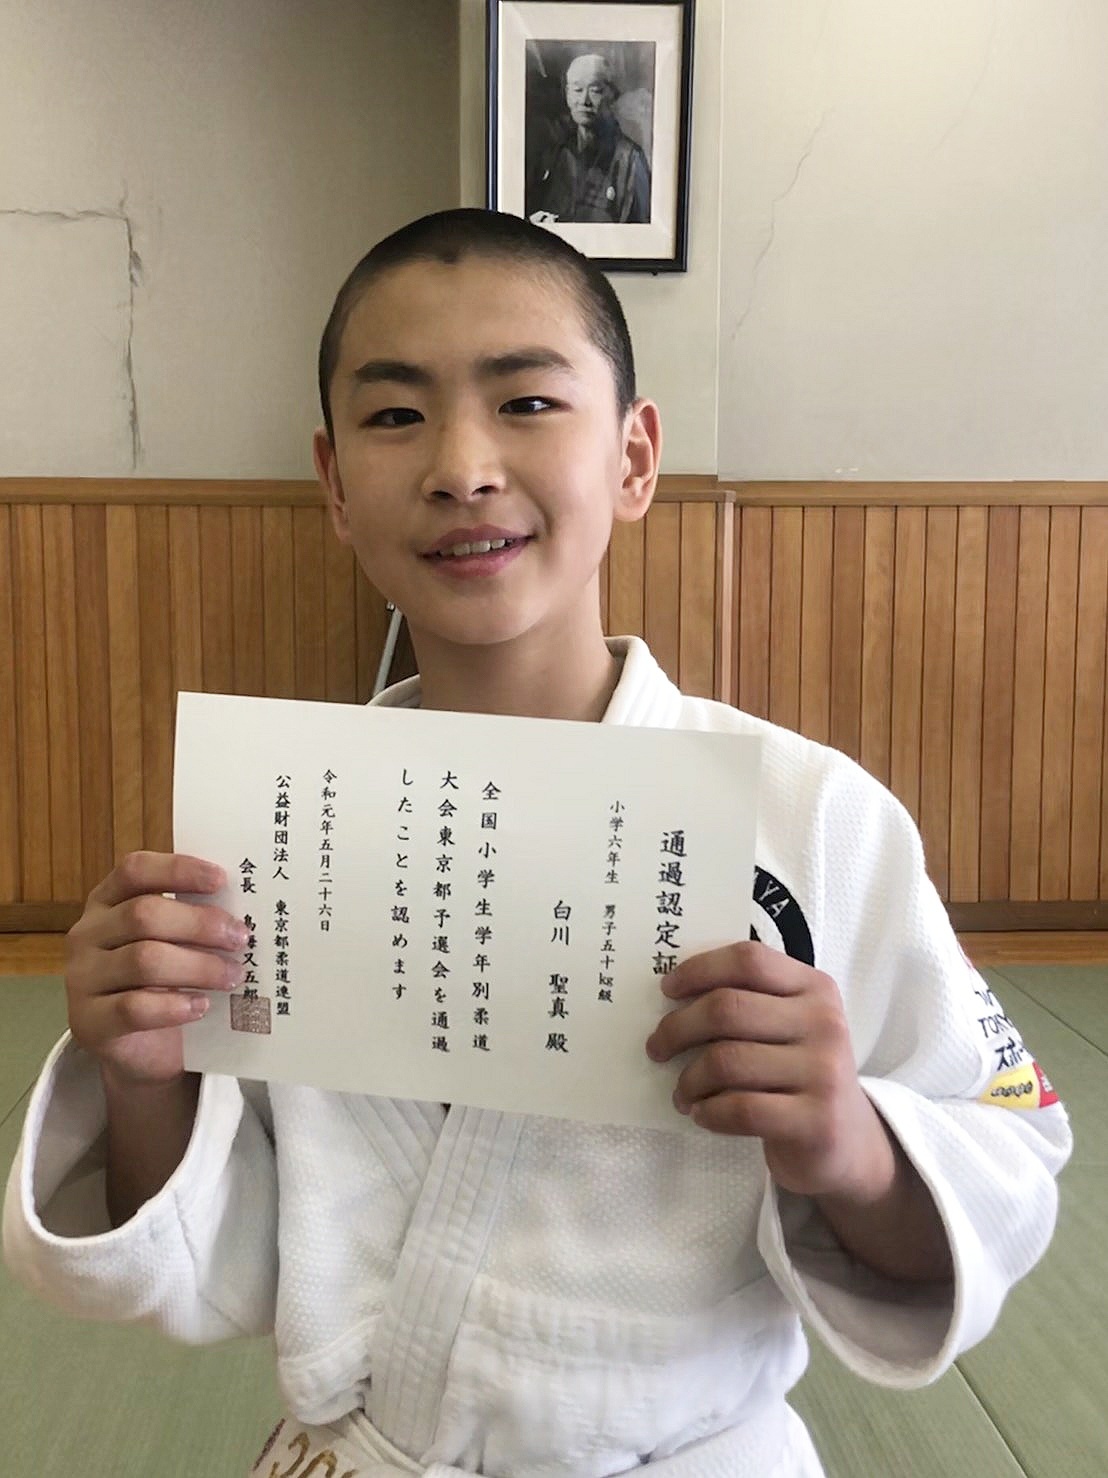 通過認定証
小学六年生 男子五十kg級
白川 聖真 殿
全国小学生学年別柔道
大会東京都予選会を通過
したことを認めます
令和元年五月二十六日
公益財団法人 東京都柔道連盟
会長 鳥海又五郎
YA
TOKY
スポー